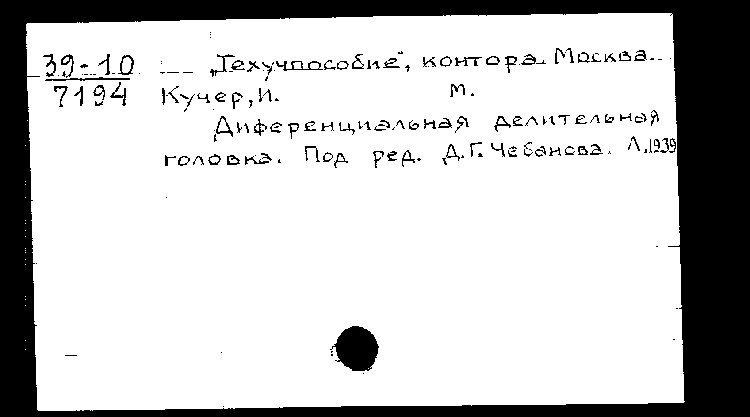 39-10 „Техучпособие", контора. Москва.
7194 Кучер, И. М.
Диференциальная делительная
головка. Под ред. Д.Г. Чебанова. Л. 1939